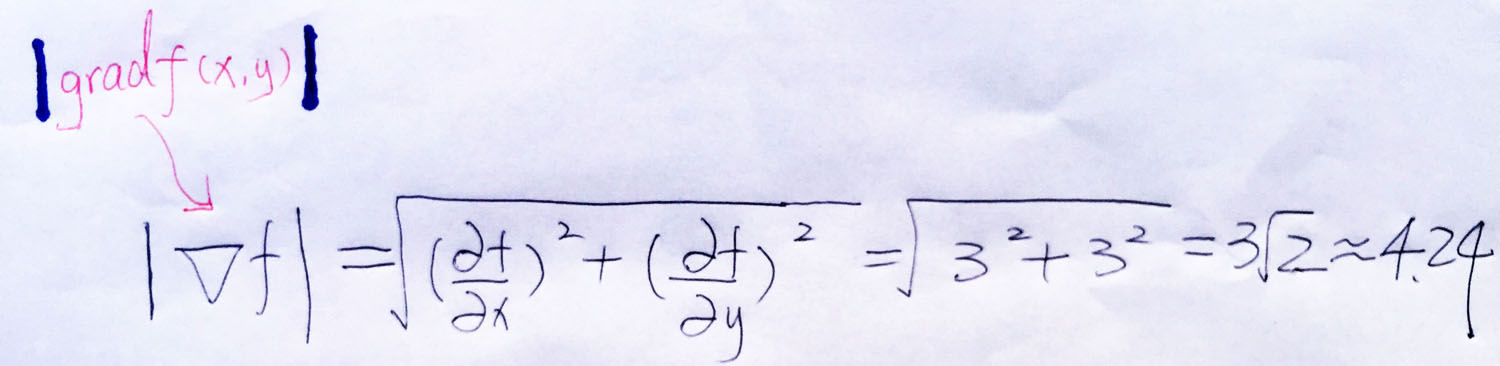 |gradf(x,y)|
|∇f| = √((∂f/∂x)² + (∂f/∂y)²) = √(3² + 3²) = 3√2 ≈ 4.24